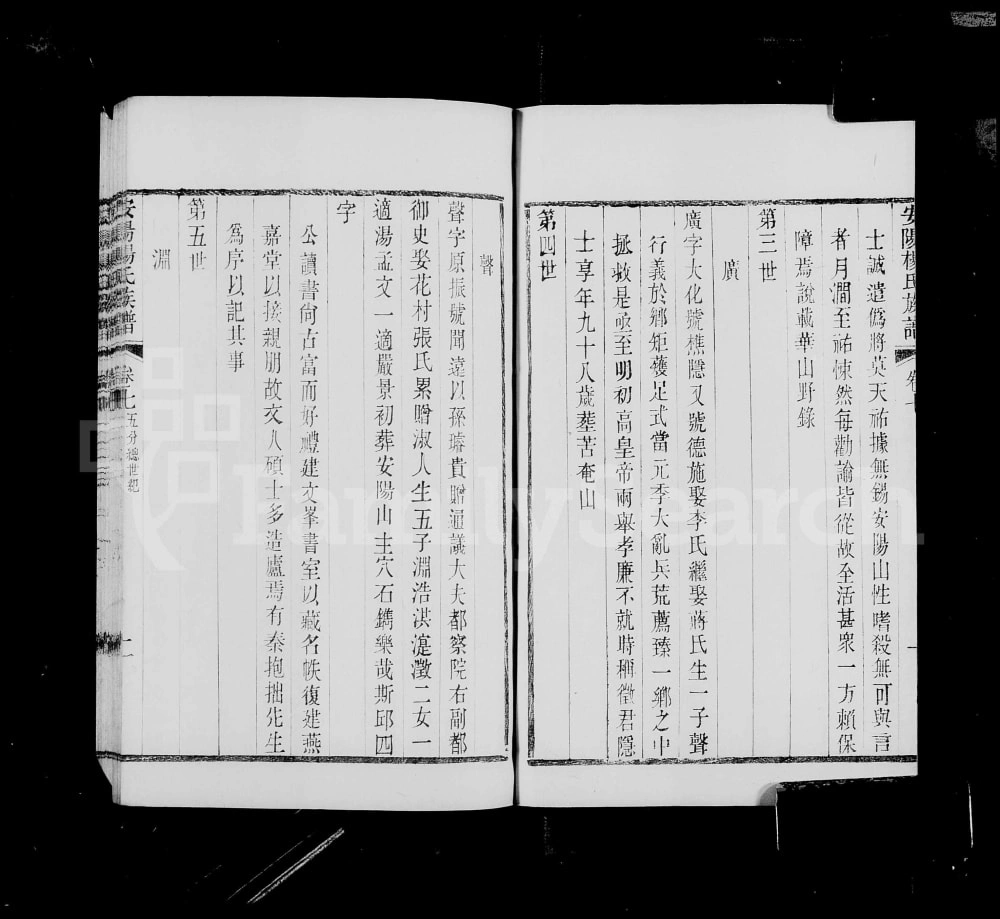 安陽楊氏族譜 卷七
士誠遣僞將莫天祐據無錫安陽山性嗜殺無可與言
者月澗至祐悚然每勸諭皆從故全活甚衆一方賴保
障焉說載華山野錄
第三世
廣
廣字大化號樵隱又號德施娶李氏繼娶蔣氏生一子聲
行義於鄉矩蠖足式當元季大亂兵荒薦臻一鄉之中
拯救是亟至明初高皇帝兩舉孝廉不就時稱徵君隱
士享年九十八歲塟苦奄山
第四世
聲
聲字原振號聞遠以孫璿貴贈通議大夫都察院右副都
御史娶花村張氏累贈淑人生五子淵浩洪瀍澂二女一
適湯孟文一適嚴景初葬安陽山主穴石鐫樂哉斯邱四
字
公讀書尙古富而好禮建文峯書室以藏名帙復建燕
嘉堂以接親朋故交人碩士多造廬焉有秦抱拙先生
爲序以記其事
第五世
淵
安陽楊氏族譜 卷七 五分總世紀 二
FamilySearch